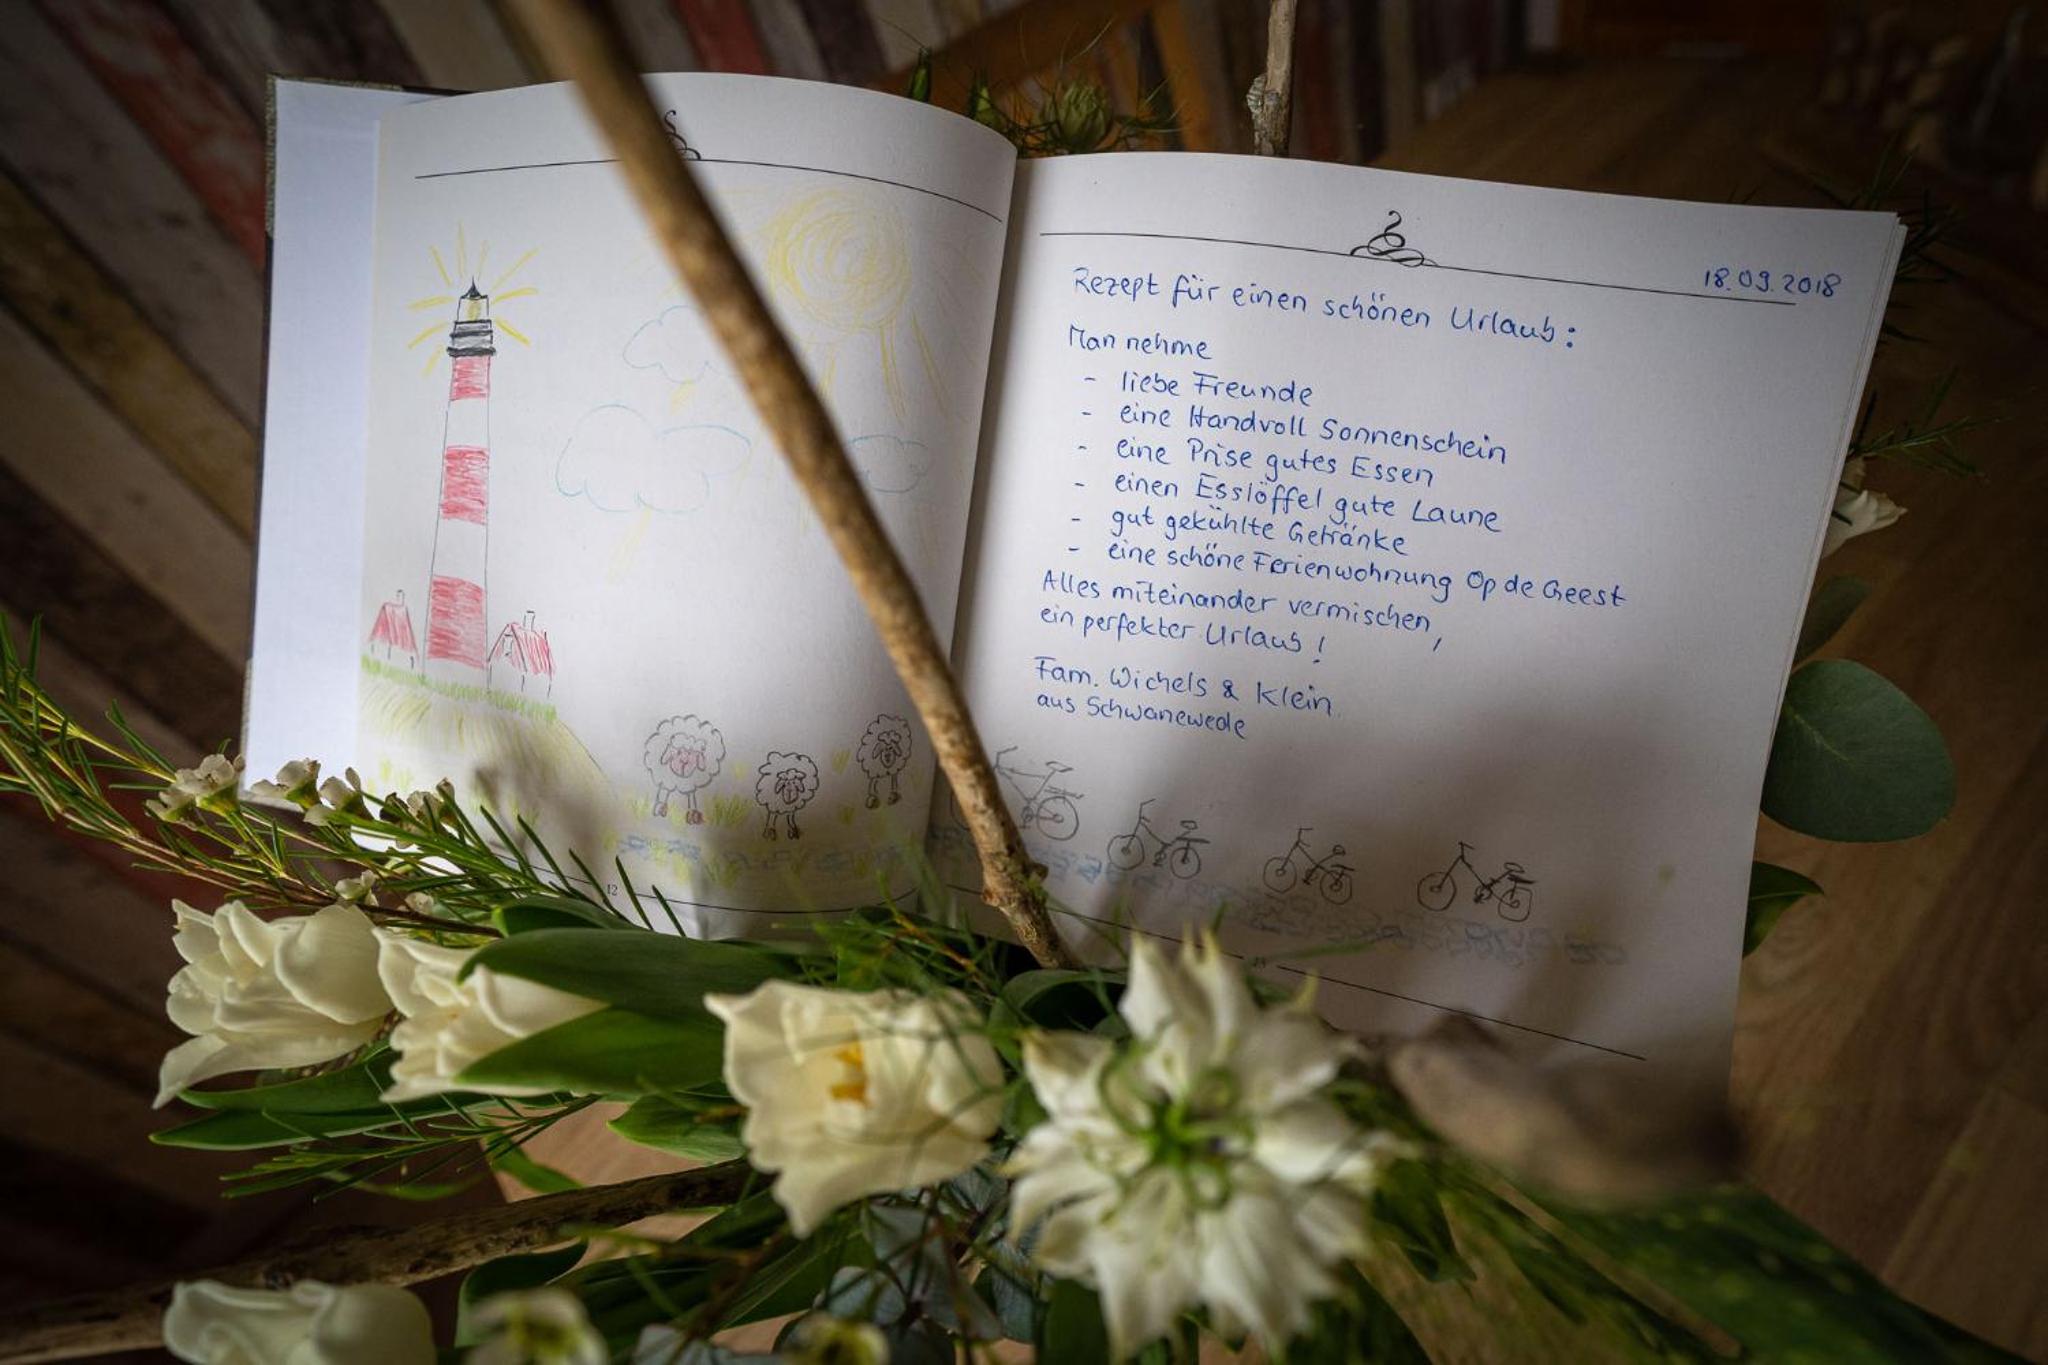 12
18.09.2018
Rezept für einen schönen Urlaub:
Man nehme
- liebe Freunde
- eine Handvoll Sonnenschein
- eine Prise gutes Essen
- einen Esslöffel gute Laune
- gut gekühlte Getränke
- eine schöne Ferienwohnung Op de Geest
Alles miteinander vermischen,
ein perfekter Urlaub!
Fam. Wichels & Klein
aus Schwanewede